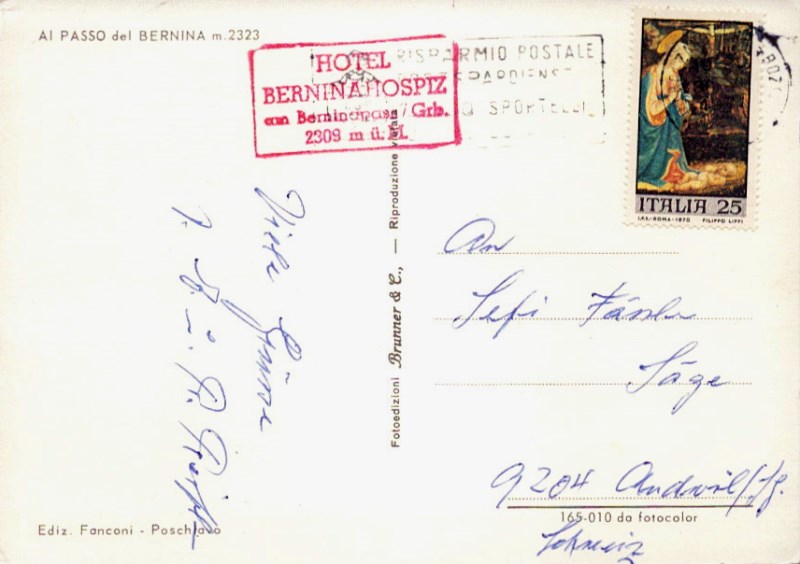 Al PASSO del BERNINA m.2323
HOTEL
BERNINAHOSPIZ
am Berninapass / Grb.
2309 m ü. M.
RISPARMIO POSTALE
SPORTELLI
ITALIA 25
I.P.S.-ROMA-1970 FILIPPO LIPPI
Viele Grüsse
Fotoedizioni Brunner & C., — Riproduzione vietata
An
Sefi Fässler
Säge
9204 Andwil/Sg.
Schweiz
165-010 da fotocolor
Ediz. Fanconi - Poschiavo